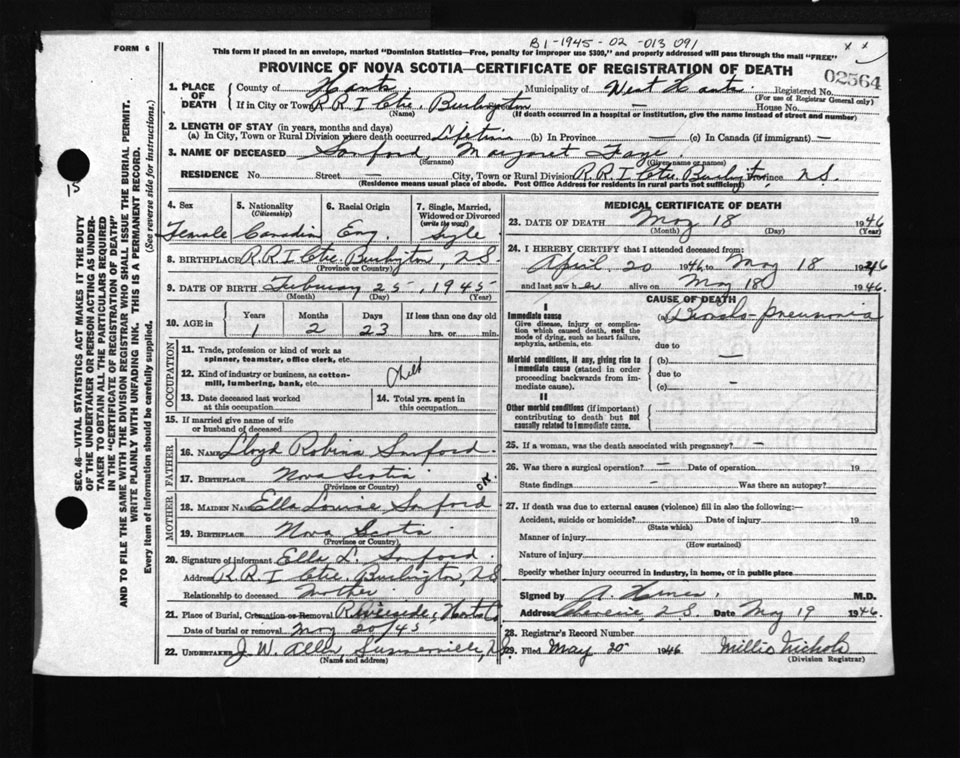 B1-1945-02-013091
FORM 6
This form if placed in an envelope, marked "Dominion Statistics—Free, penalty for improper use $300," and properly addressed will pass through the mail "FREE"
PROVINCE OF NOVA SCOTIA—CERTIFICATE OF REGISTRATION OF DEATH
02564
1. PLACE OF DEATH
County of Hants Municipality of West Hants Registered No.
(For use of Registrar General only)
If in City or Town R.R. 1 Ctre. Burlington House No.
(Name) (If death occurred in a hospital or institution, give the name instead of street and number)
2. LENGTH OF STAY (in years, months and days)
(a) In City, Town or Rural Division where death occurred Lifetime (b) In Province — (c) In Canada (if immigrant) —
3. NAME OF DECEASED Sanford, Margaret Faye
(Surname) (Given name or names)
RESIDENCE No. Street — City, Town or Rural Division R.R. 1 Ctre. Burlington, Province N.S.
(Residence means usual place of abode. Post Office Address for residents in rural parts not sufficient)
4. Sex 5. Nationality (Citizenship) 6. Racial Origin 7. Single, Married, Widowed or Divorced (write the word)
Female Canadian Eng. Single
8. BIRTHPLACE R.R. 1 Ctre. Burlington, N.S.
(Province or Country)
9. DATE OF BIRTH February 25, 1945
(Month) (Day) (Year)
10. AGE in Years Months Days If less than one day old
1 2 23 hrs. or min.
OCCUPATION
11. Trade, profession or kind of work as spinner, teamster, office clerk, etc.
12. Kind of industry or business, as cotton-mill, lumbering, bank, etc.
13. Date deceased last worked at this occupation
14. Total yrs. spent in this occupation
15. If married give name of wife or husband of deceased
FATHER
16. NAME Lloyd Sanford
17. BIRTHPLACE Nova Scotia
(Province or Country)
MOTHER
18. MAIDEN NAME Ella Louise Sanford
OK.
19. BIRTHPLACE Nova Scotia
(Province or Country)
20. Signature of informant Ella L. Sanford
Address R.R. 1 Ctre. Burlington, N.S.
Relationship to deceased Mother
21. Place of Burial, Cremation or Removal Riverside, Hants Co
Date of burial or removal May 20/45
22. UNDERTAKER J. W. Summerville, N.S.
(Name and address)
MEDICAL CERTIFICATE OF DEATH
23. DATE OF DEATH May 18 1946
(Month) (Day) (Year)
24. I HEREBY CERTIFY that I attended deceased from:
April 20 1946 to May 18 1946
and last saw her alive on May 18 1946.
CAUSE OF DEATH
I
Immediate cause
Give disease, injury or complication which caused death, not the mode of dying, such as heart failure, asphyxia, asthenia, etc.
(a) pneumonia
due to
Morbid conditions, if any, giving rise to immediate cause (stated in order proceeding backwards from immediate cause).
(b) —
due to
(c) —
II
Other morbid conditions (if important) contributing to death but not causally related to immediate cause.
25. If a woman, was the death associated with pregnancy? —
26. Was there a surgical operation? — Date of operation 19
State findings — Was there an autopsy?
27. If death was due to external causes (violence) fill in also the following:—
Accident, suicide or homicide? Date of injury 19
(State which)
Manner of injury
(How sustained)
Nature of injury
Specify whether injury occurred in industry, in home, or in public place
Signed by M.D.
Address N.S. Date May 19 1946.
28. Registrar's Record Number
29. Filed May 20 1946 Nichols
(Division Registrar)
15
SEC. 46—VITAL STATISTICS ACT MAKES IT THE DUTY
OF THE UNDERTAKER OR PERSON ACTING AS UNDER-
TAKER TO OBTAIN ALL THE PARTICULARS REQUIRED
IN THE "CERTIFICATE OF REGISTRATION OF DEATH"
AND TO FILE THE SAME WITH THE DIVISION REGISTRAR WHO SHALL ISSUE THE BURIAL PERMIT.
WRITE PLAINLY WITH UNFADING INK. THIS IS A PERMANENT RECORD.
Every item of information should be carefully supplied. (See reverse side for instructions.)